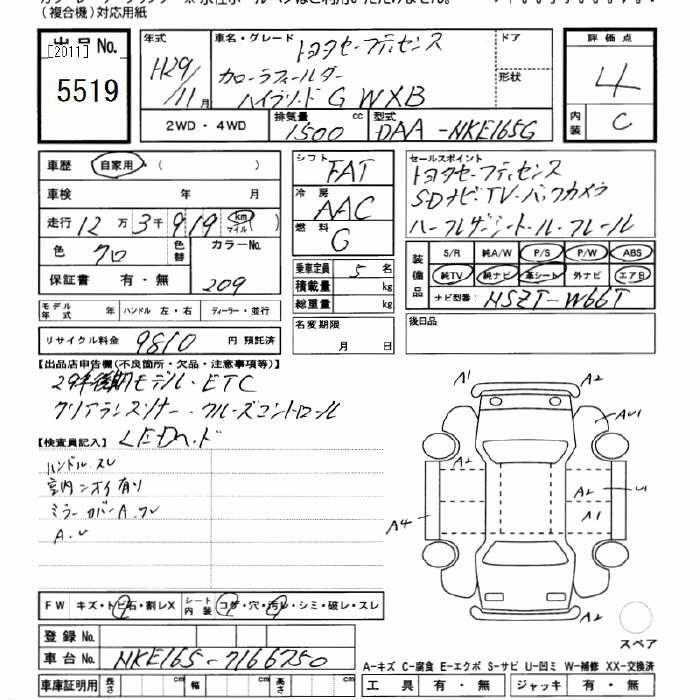 (複合機)対応用紙
出品No.
[2011]
5519
年式 H29/11月
車名・グレード トヨタセーフティセンス
カローラフィールダー
ハイブリッド G WXB
ドア
形状
2WD・4WD
排気量 1500 cc
型式 DAA-NKE165G
評価点 4
内装 C
車歴 自家用・( )
車検 年 月
走行 12万3千919 km マイル
色 クロ 色替 カラーNo. 209
保証書 有・無
シフト FAT
冷房 AAC
燃料 G
乗車定員 5名
積載量 kg
総重量 kg
セールスポイント トヨタセーフティセンス
SDナビTV・バックカメラ
ハーフレザーシート・ル・フレール
装備品 S/R 純A/W P/S P/W ABS
純TV 純ナビ 革シート 外ナビ エアB
ナビ型番 NSZT-W66T
モデル年式 年 ハンドル 左・右 ディーラー・並行
リサイクル料金 9810 円 預託済
名変期限 月 日
後日品
【出品店申告欄(不良箇所・欠品・注意事項等)】
29年後期モデル・ETC
クリアランスソナー・クルーズコントロール
LEDヘッド
【検査員記入】
ハンドル.スレ
室内ニオイ有り
ミラーカバーA.ワレ
A.U
A1 A2
AU1
A2
A2 U1
A1
A4
A2
スペア
FW キズ・トビ石・割レX シート内装 コゲ・穴・汚レ・シミ・破レ・スレ
登録No.
車台No. NKE165-7166750
車庫証明用 長さ cm 幅 cm 高さ cm
A-キズ C-腐食 E-エクボ S-サビ U-凹ミ W-補修 XX-交換済
工具 有・無 ジャッキ 有・無